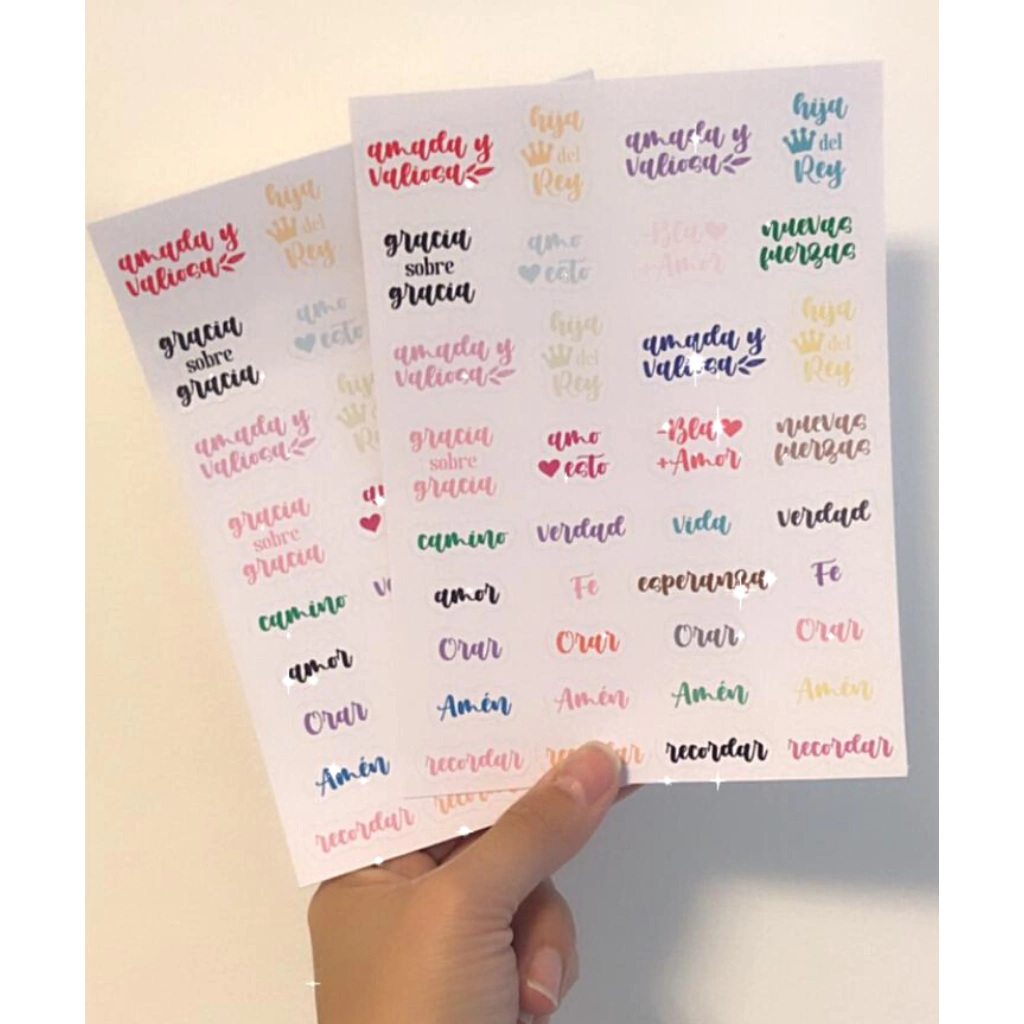 amada y
valiosa
hija
del
Rey
amada y
valiosa
hija
del
Rey
gracia
sobre
gracia
amo
esto
-Bla
+Amor
nuevas
fuerzas
amada y
valiosa
hija
del
Rey
amada y
valiosa
hija
del
Rey
gracia
sobre
gracia
amo
esto
-Bla
+Amor
nuevas
fuerzas
camino
verdad
vida
verdad
amor
Fe
esperanza
Fe
Orar
Orar
Orar
Orar
Amén
Amén
Amén
Amén
recordar
recordar
recordar
recordar
amada y
valiosa
hija
del
Rey
gracia
sobre
gracia
amo
esto
amada y
valiosa
gracia
sobre
gracia
camino
amor
Orar
Amén
recordar